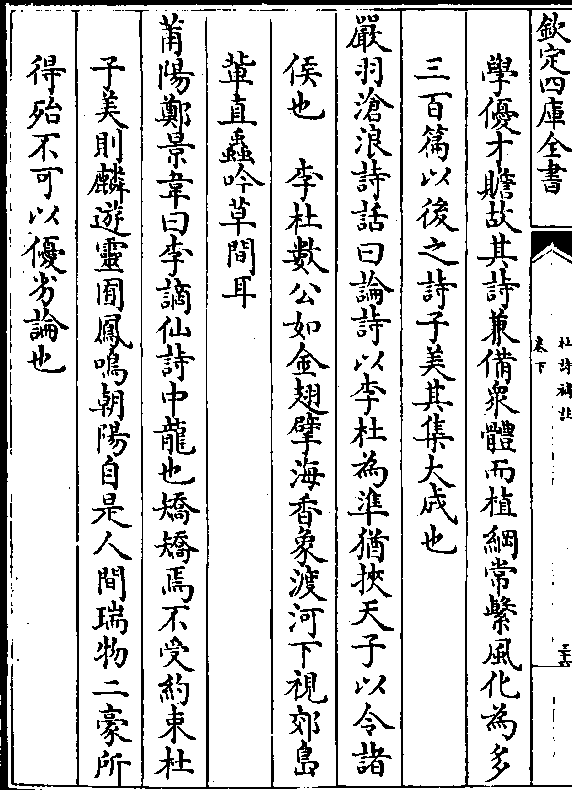 欽定四庫全書
杜詩補註
卷下
三六
學優才贍故其詩兼備衆體而植綱常繫風化為多
三百篇以後之詩子美其集大成也
嚴羽滄浪詩話曰論詩以李杜為準猶挾天子以令諸
侯也　李杜數公如金翅擘海香象渡河下視郊島
輩直蟲吟草間耳
莆陽鄭景韋曰李謫仙詩中龍也矯矯焉不受約束杜
子美則麟遊靈囿鳳鳴朝陽自是人間瑞物二豪所
得殆不可以優劣論也